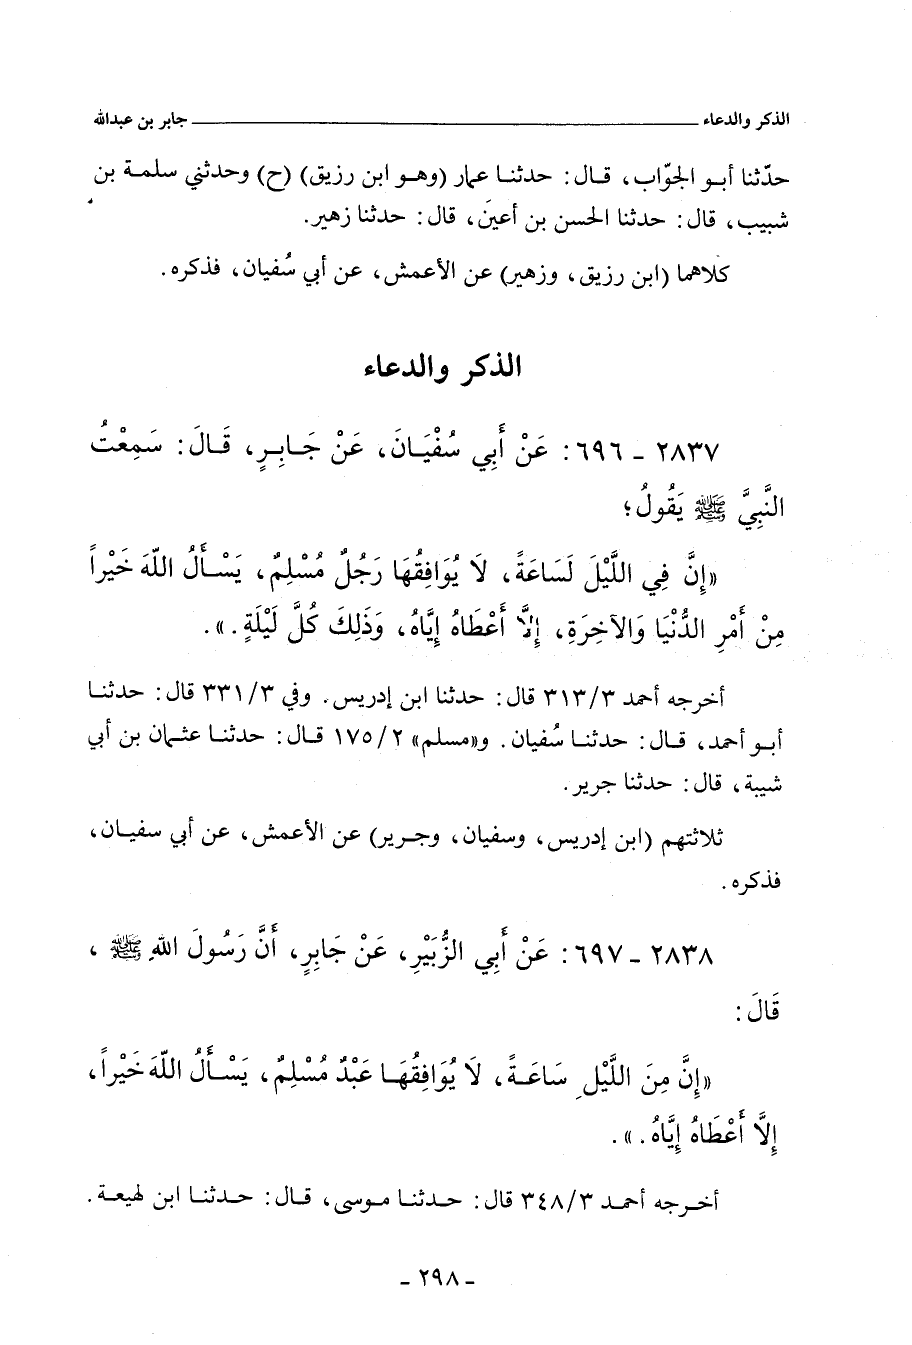 الذكر والدعاء ــــــــــــــــــــ جابر بن عبدالله
حدّثنا أبو الجوّاب، قال: حدثنا عمار (وهو ابن رزيق) (ح) وحدثني سلمة بن
شبيب، قال: حدثنا الحسن بن أعين، قال: حدثنا زهير.
كلاهما (ابن رزيق، وزهير) عن الأعمش، عن أبي سُفيان، فذكره.
الذكر والدعاء
٢٨٣٧ - ٦٩٦: عَنْ أَبِي سُفْيَانَ، عَنْ جَابِرٍ، قَالَ: سَمِعْتُ
النَّبِيَّ ﷺ يَقُولُ؛
«إِنَّ فِي اللَّيْلَ لَسَاعَةً، لَا يُوَافِقُهَا رَجُلٌ مُسْلِمٌ، يَسْأَلُ اللّهَ خَيْراً
مِنْ أَمْرِ الدُّنْيَا وَالآخِرَةِ، إِلَّا أَعْطَاهُ إِيَّاهُ، وَذَلِكَ كُلَّ لَيْلَةٍ.».
أخرجه أحمد ٣/٣١٣ قال: حدثنا ابن إدريس. وفي ٣/٣٣١ قال: حدثنا
أبو أحمد، قال: حدثنا سُفيان. و«مسلم» ٢/١٧٥ قال: حدثنا عثمان بن أبي
شيبة، قال: حدثنا جرير.
ثلاثتهم (ابن إدريس، وسفيان، وجرير) عن الأعمش، عن أبي سفيان،
فذكره.
٢٨٣٨ - ٦٩٧: عَنْ أَبِي الزُّبَيْرِ، عَنْ جَابِرٍ، أَنَّ رَسُولَ اللهِ ﷺ،
قَالَ:
«إِنَّ مِنَ اللَّيْلِ سَاعَةً، لَا يُوَافِقُهَا عَبْدٌ مُسْلِمٌ، يَسْأَلُ اللّهَ خَيْراً،
إِلَّا أَعْطَاهُ إِيَّاهُ.».
أخرجه أحمد ٣/٣٤٨ قال: حدثنا موسى، قال: حدثنا ابن لهيعة.
- ٢٩٨ -